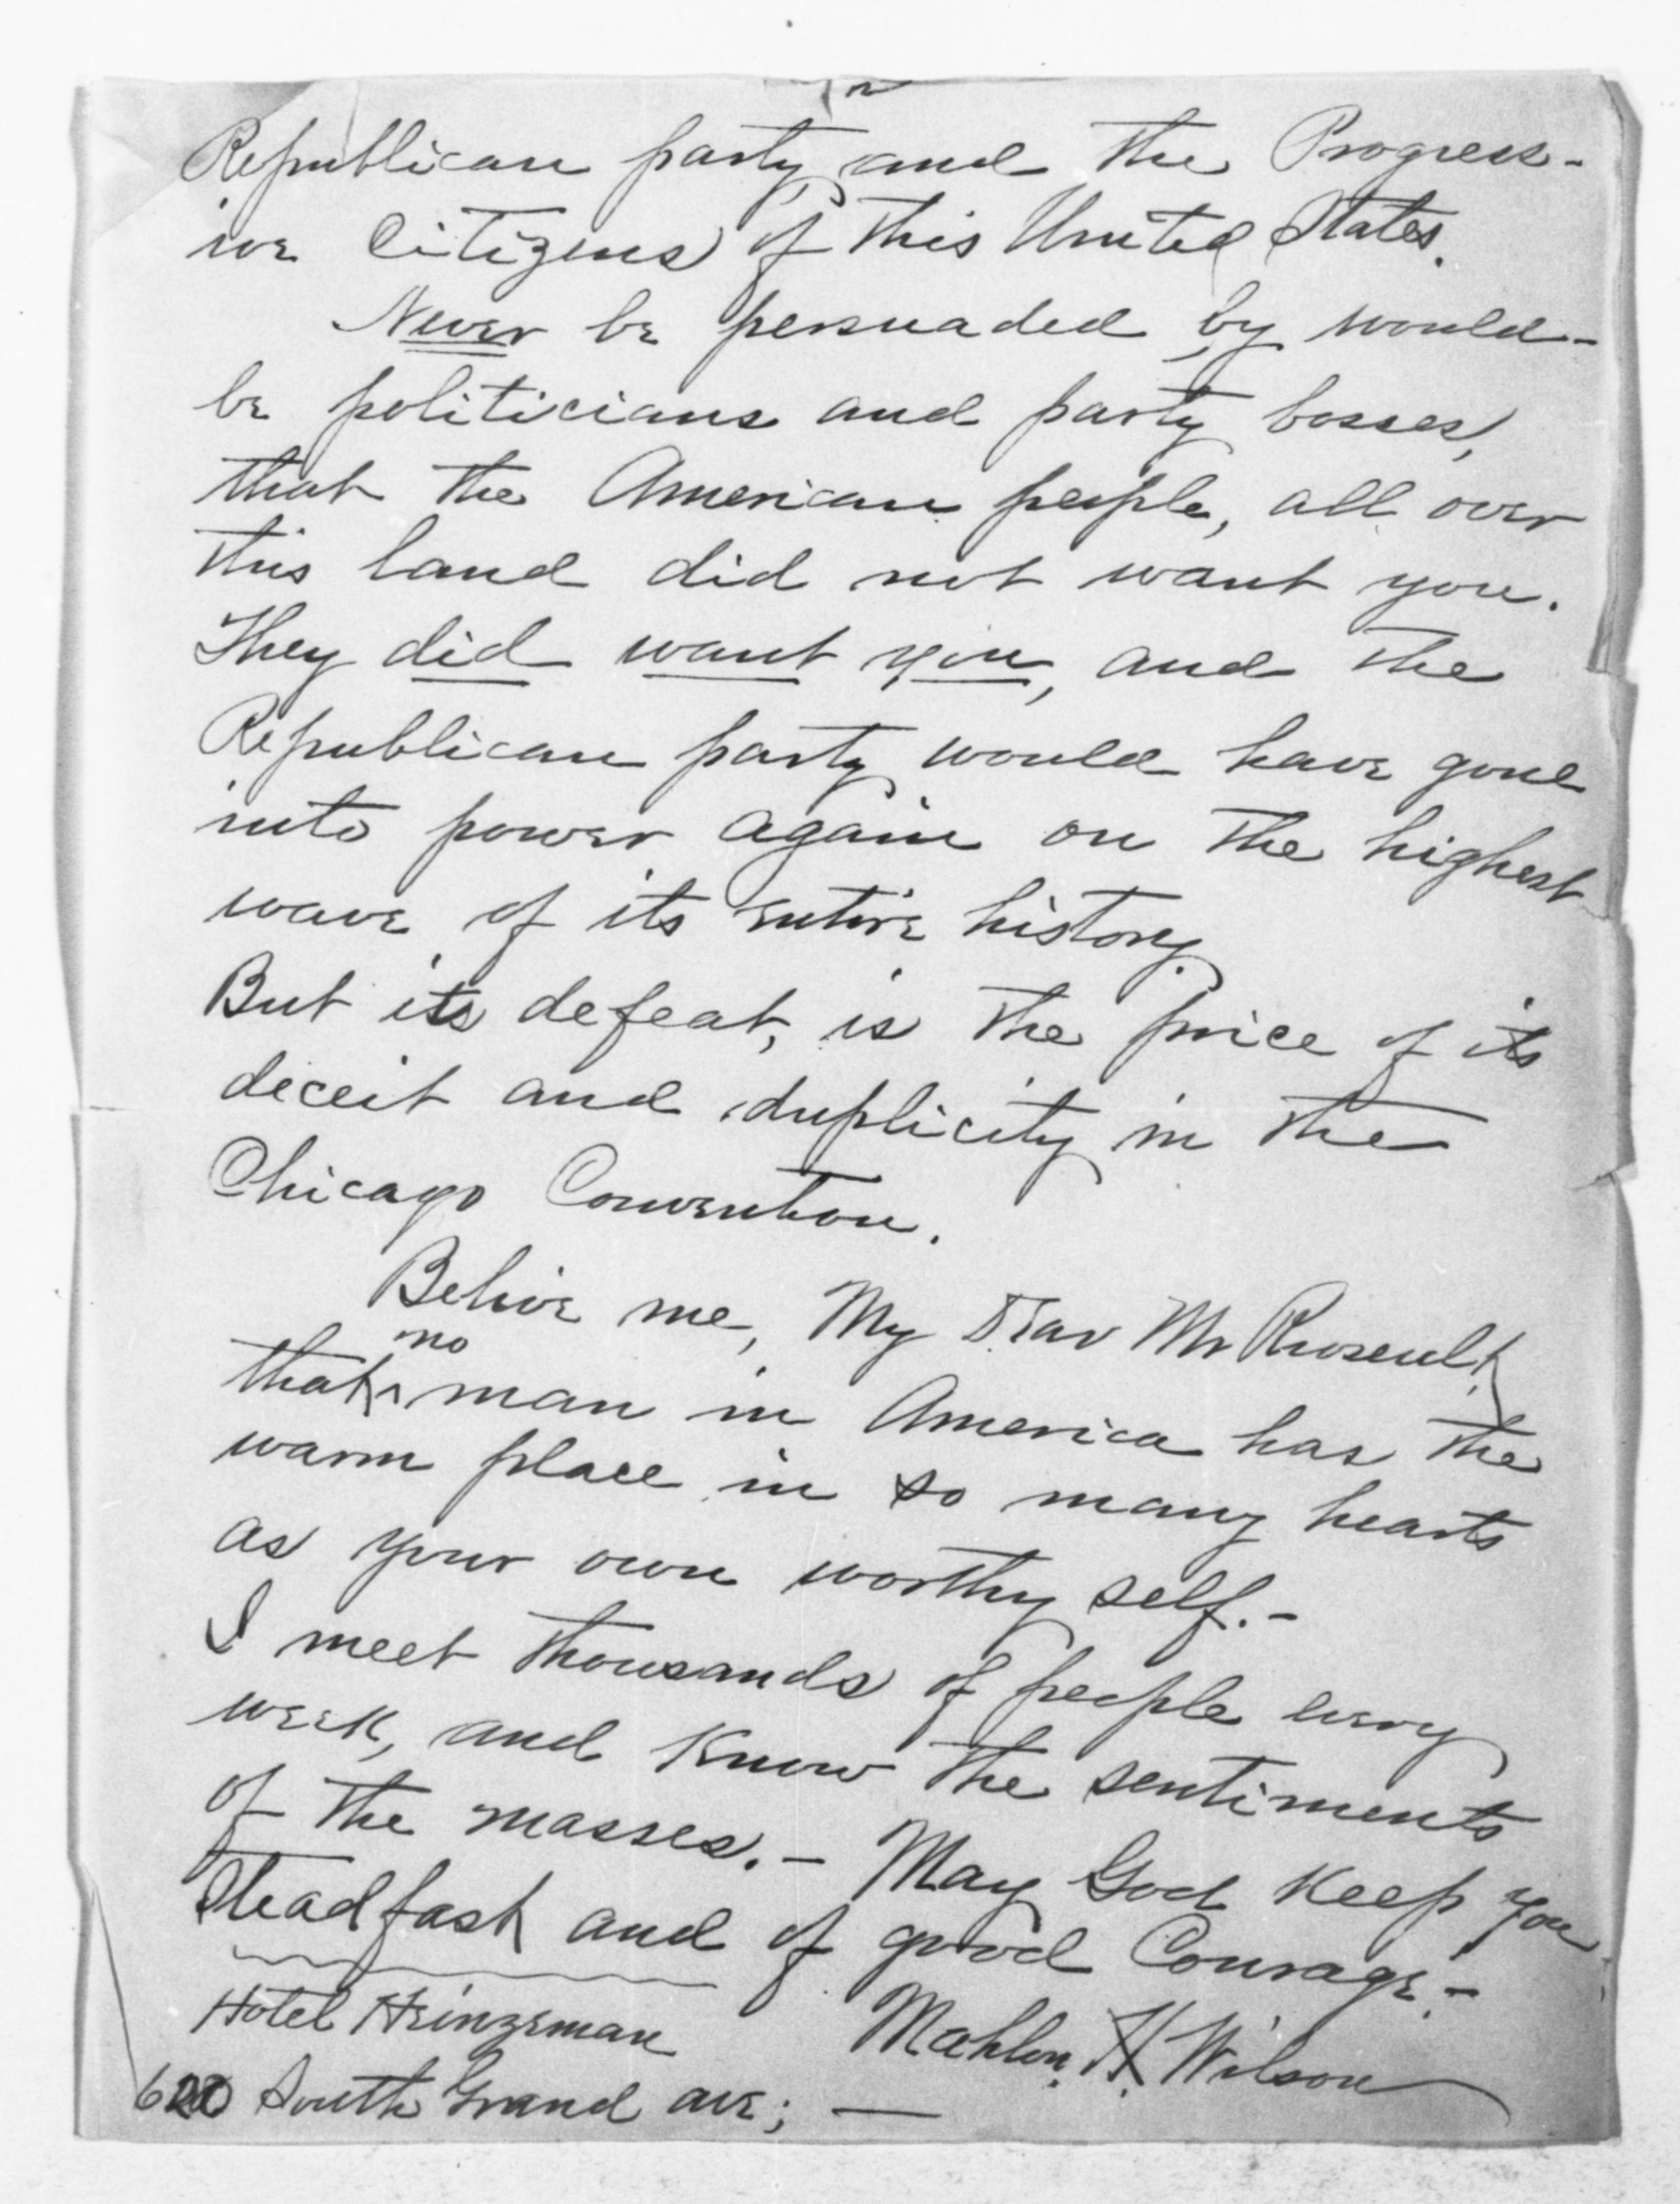 Republican party and the Progress-
ive Citizens of this United States.
Never be persuaded by would-
be politicians and party bosses,
that the American people, all over
this land did not want you.
They did want you, and the
Republican party would have gone
into power again on the highest
wave of its entire history.
But its defeat, is the price of its
deceit and duplicity in the
Chicago Convention.
Belive me, My Dear Mr Roosevelt,
no
that ^ man in America has the
warm place in so many hearts
as your own worthy self.-
I meet thousands of people every
week, and know the sentiments
of the masses.- May God keep you
steadfast and of good Courage.-
Hotel Heinzeman Mahlon H. Wilson
620 South Grand ave; —